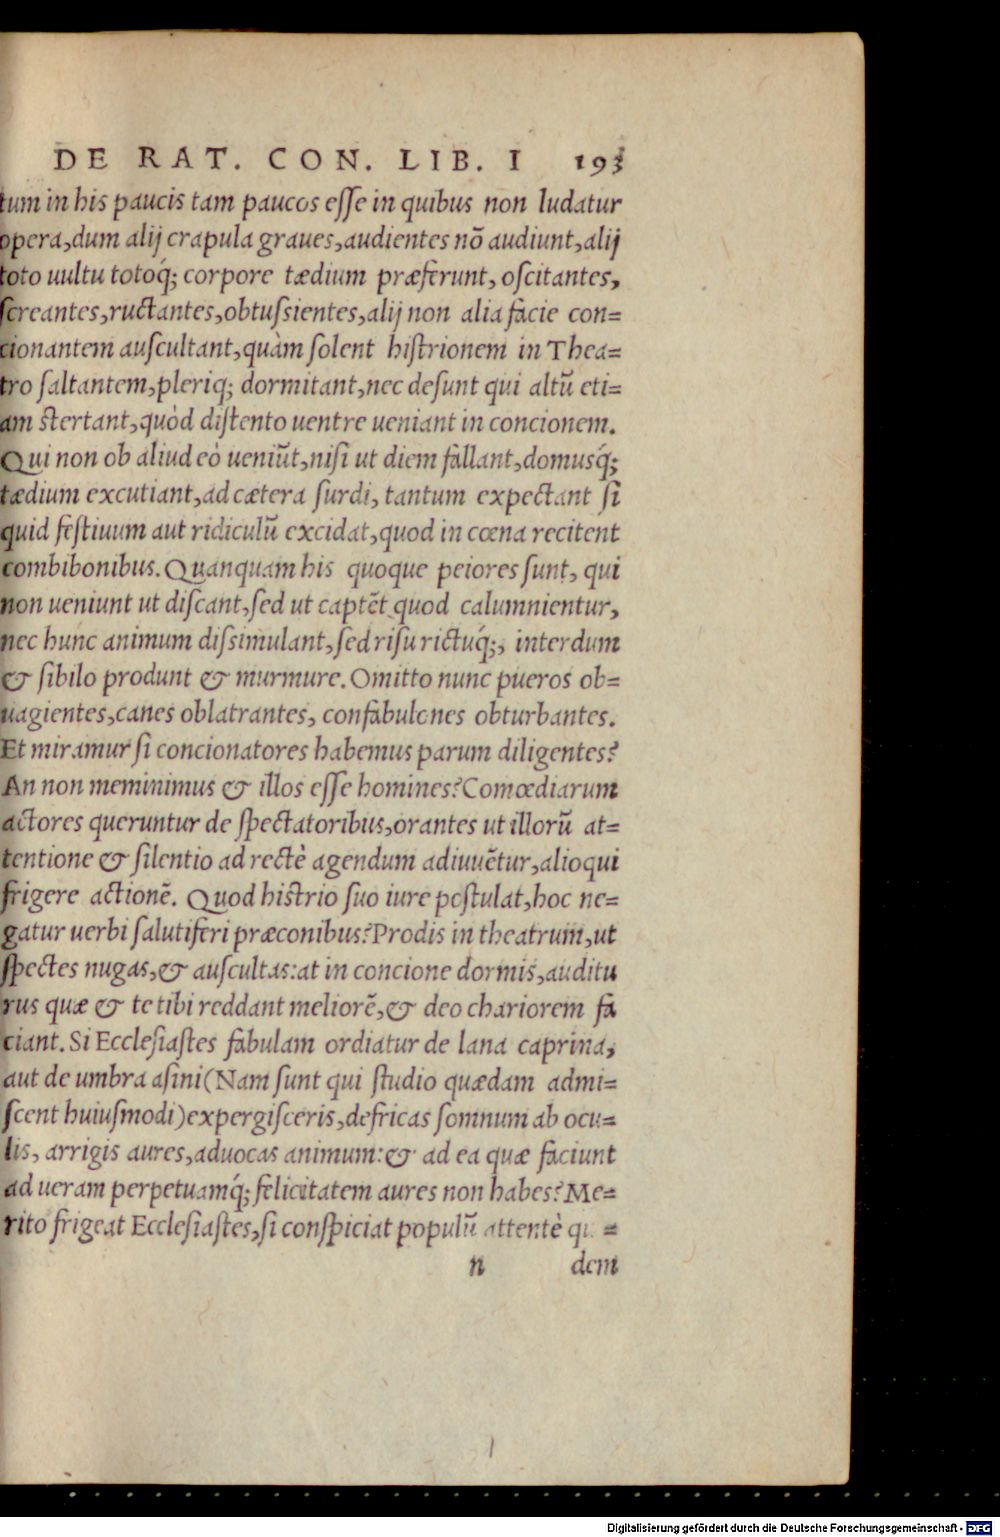 DE RAT. CON. LIB. I 193
tum in his paucis tam paucos esse in quibus non ludatur
opera,dum alij crapula graues,audientes nõ audiunt,alij
toto uultu totoq́; corpore tædium præferunt, oscitantes,
screantes,ructantes,obtussientes,alij non alia facie con=
cionantem auscultant,quàm solent histrionem in Thea=
tro saltantem,pleriq; dormitant,nec desunt qui altũ eti=
am stertant,quòd distento uentre ueniant in concionem.
Qui non ob aliud eò ueniũt,nisi ut diem fallant,domusq́;
tædium excutiant,ad cætera surdi, tantum expectant si
quid festiuum aut ridiculũ excidat,quod in cœna recitent
combibonibus.Quanquam his quoque peiores sunt, qui
non ueniunt ut discant,sed ut captẽt quod calumnientur,
nec hunc animum dissimulant,sed risu rictuq́;, interdum
& sibilo produnt & murmure.Omitto nunc pueros ob=
uagientes,canes oblatrantes, confabulones obturbantes.
Et miramur si concionatores habemus parum diligentes?
An non meminimus & illos esse homines?Comœdiarum
actores queruntur de spectatoribus,orantes ut illorũ at=
tentione & silentio ad rectè agendum adiuuẽtur,alioqui
frigere actionẽ. Quod histrio suo iure postulat,hoc ne=
gatur uerbi salutiferi præconibus?Prodis in theatrum,ut
spectes nugas,& auscultas:at in concione dormis,auditu
rus quæ & te tibi reddant meliorẽ,& deo chariorem fa
ciant.Si Ecclesiastes fabulam ordiatur de lana caprina,
aut de umbra asini(Nam sunt qui studio quædam admi=
scent huiusmodi)expergisceris,defricas somnum ab ocu=
lis, arrigis aures,aduocas animum:& ad ea quæ faciunt
ad ueram perpetuamq́; felicitatem aures non habes?Me=
rito frigeat Ecclesiastes,si conspiciat populũ attentè qui=
n dem
Digitalisierung gefördert durch die Deutsche Forschungsgemeinschaft - DFG